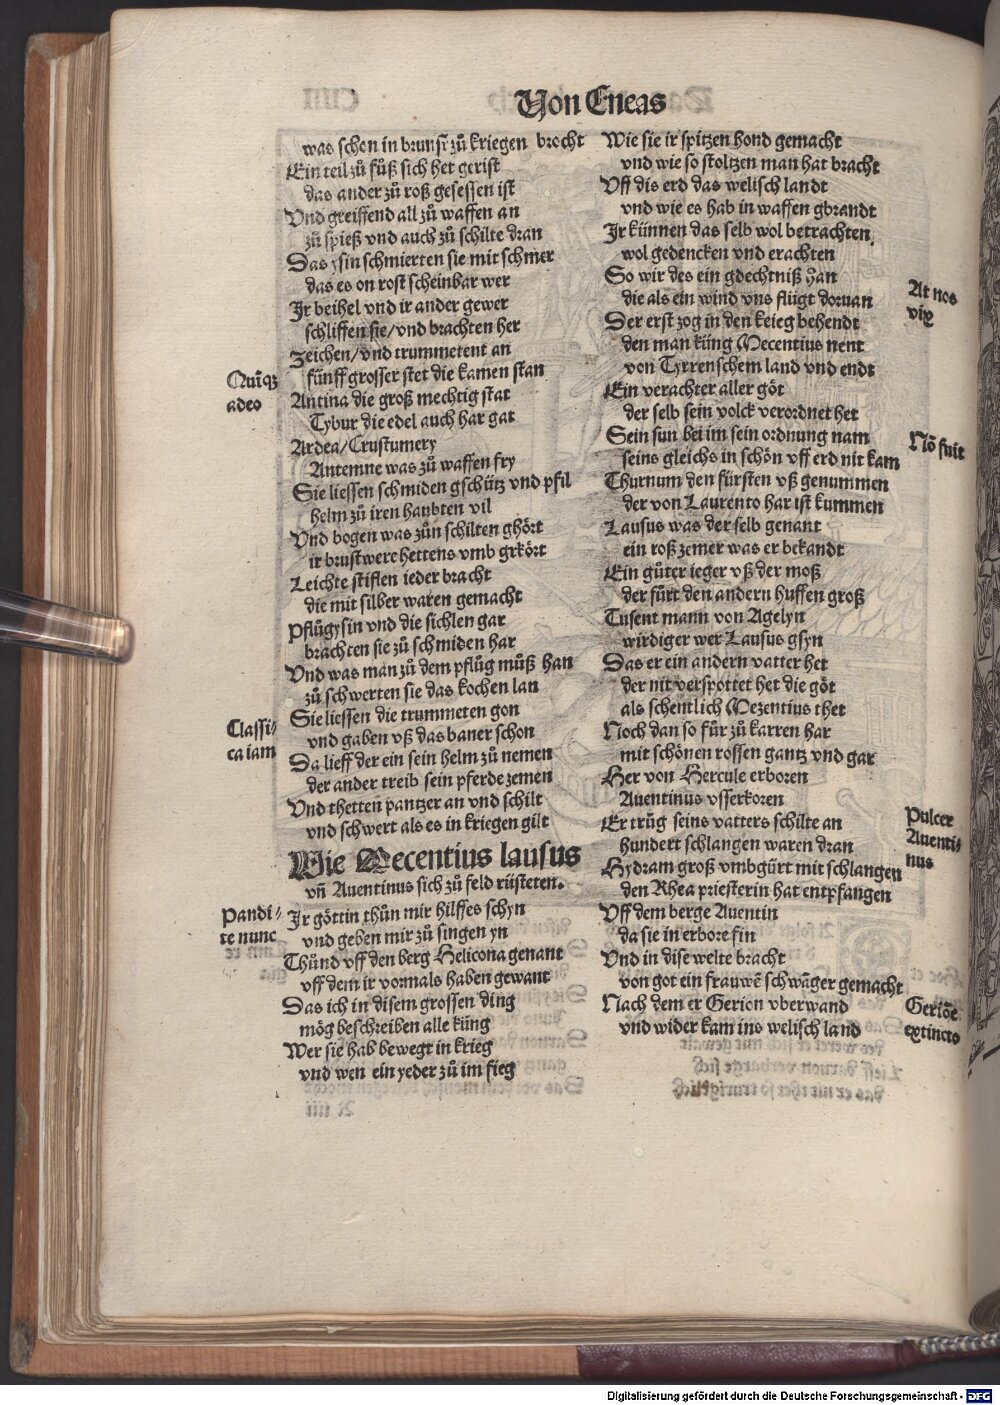 Von Eneas
was schon in brunst zů kriegen brocht
Ein teil zů fůß sich het gerist
das ander zů roß gesessen ist
Vnd greiffend all zů waffen an
zů spieß vnd auch zů schilte dran
Das ysin schmierten sie mit schmer
das es on rost scheinbar wer
Ir beihel vnd ir ander gewer
schliffen sie/vnd brachten her
Zeichen/vnd trummetent an
fünff grosser stet die kamen stan
Quīqꝫ
adeo
Antina die groß mechtig stat
Tybur die edel auch har gat
Ardea/Crustumery
Antemne was zů waffen fry
Sie liessen schmiden gschütz vnd pfil
helm zů iren haubten vil
Vnd bogen was zůn schilten ghört
ir brustwere hettens vmb grkört
Leichte stiflen ieder bracht
die mit silber waren gemacht
Pflůgysin vnd die sichlen gar
brachten sie zů schmiden har
Vnd was man zů dem pflůg můß han
zů schwerten sie das kochen lan
Sie liessen die trummeten gon
vnd gaben vß das baner schon
Classi⸗
ca iam
Da lieff der ein sein helm zů nemen
der ander treib sein pferde zemen
Vnd thetten pantzer an vnd schilt
vnd schwert als es in kriegen gilt
Wie Mecentius lausus
vñ Auentinus sich zů feld rüsteten.
Pandi⸗
te nunc
Ir göttin thůn mir hilffes schyn
vnd geben mir zů singen yn
Thůnd vff den berg Helicona genant
vff dem ir vormals haben gewant
Das ich in disem grossen ding
mög beschreiben alle küng
Wer sie hab bewegt in krieg
vnd wen ein yeder zů im fieg
Wie sie ir spitzen hond gemacht
vnd wie so stoltzen man hat bracht
Vff dis erd das welisch landt
vnd wie es hab in waffen gbrandt
Ir künnen das selb wol betrachten
wol gedencken vnd erachten
So wir des ein gdechtniß han
die als ein wind vns flügt doruan
At nos
vix
Der erst zog in den keieg behendt
den man küng Mecentius nent
von Tyrrenschem land vnd endt
Ein verachter aller göt
der selb sein volck verordnet het
Sein sun bei im sein ordnung nam
seins gleichs in schön vff erd nit kam
Nō fuit
Thurnum den fürsten vß genummen
der von Laurento har ist kummen
Lausus was der selb genant
ein roß zemer was er bekandt
Ein gůter ieger vß der moß
der fürt den andern huffen groß
Tusent mann von Agelyn
wirdiger wer Lausus gsyn
Das er ein andern vatter het
der nit verspottet het die göt
als schentlich Mezentius thet
Noch dan so für zů karren har
mit schönen rossen gantz vnd gar
Her von Hercule erboren
Auentinus vsserkoren
Er trůg seins vatters schilte an
hundert schlangen waren dran
Pulcer
Auenti⸗
nus
Hydram groß vmbgürt mit schlangen
den Rhea priesterin hat entpfangen
Vff dem berge Auentin
da sie in erbore fin
Vnd in dise welte bracht
von got ein frauwē schwäger gemacht
Nach dem er Gerion vberwand
vnd wider kam ins welisch land
Geriōe
extincto
Digitalisierung gefördert durch die Deutsche Forschungsgemeinschaft - DFG